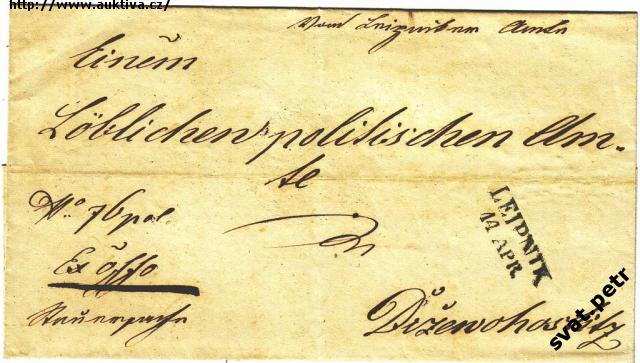 http://www.auktiva.cz/
Vom Leipniker Amte
Einem
Löblichen politischen Am-
te
No 76 pol.
Ex offo
Steuersache
in
LEIPNIK
14 APR.
Držewohostitz
svat.petr